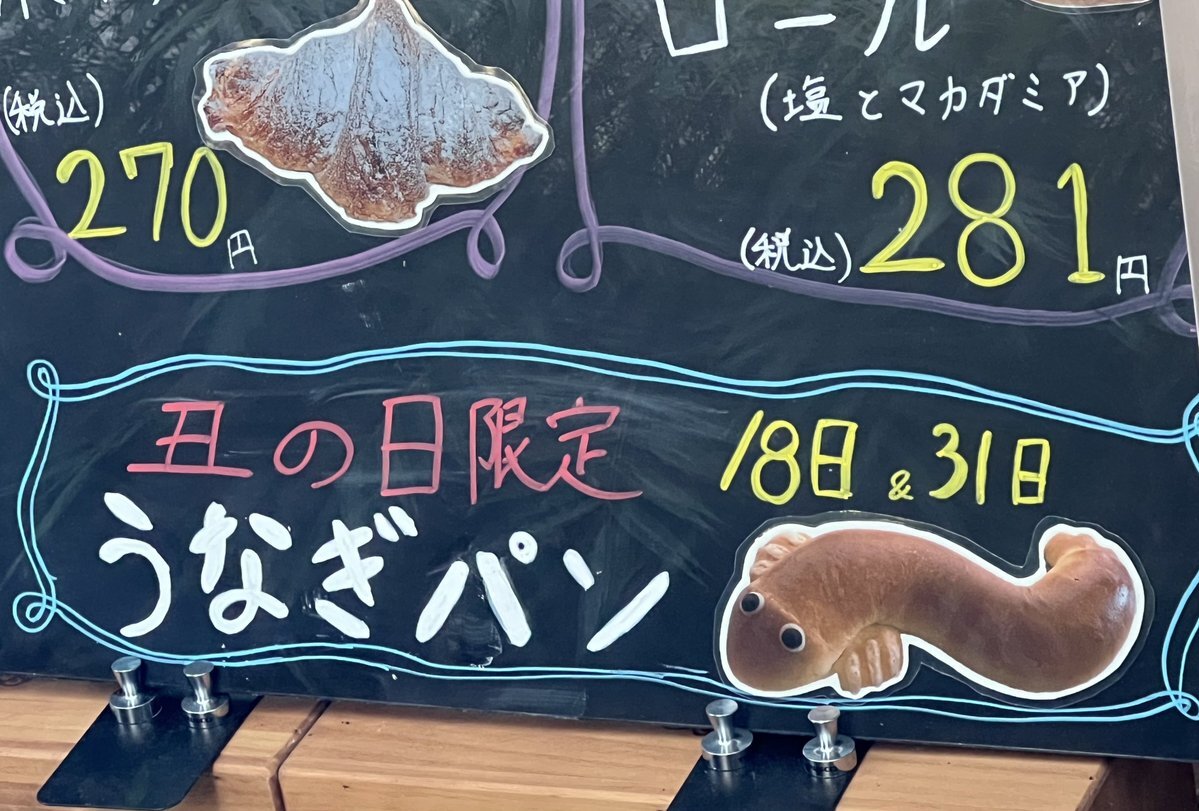 (税込)
270円
ロール
(塩とマカダミア)
(税込) 281円
丑の日限定
18日 & 31日
うなぎパン